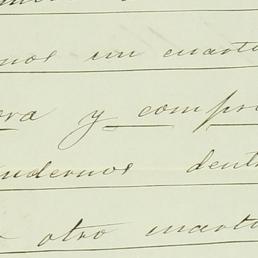 nos un cuarto
ora y compr
udernos dent
otro cuarto